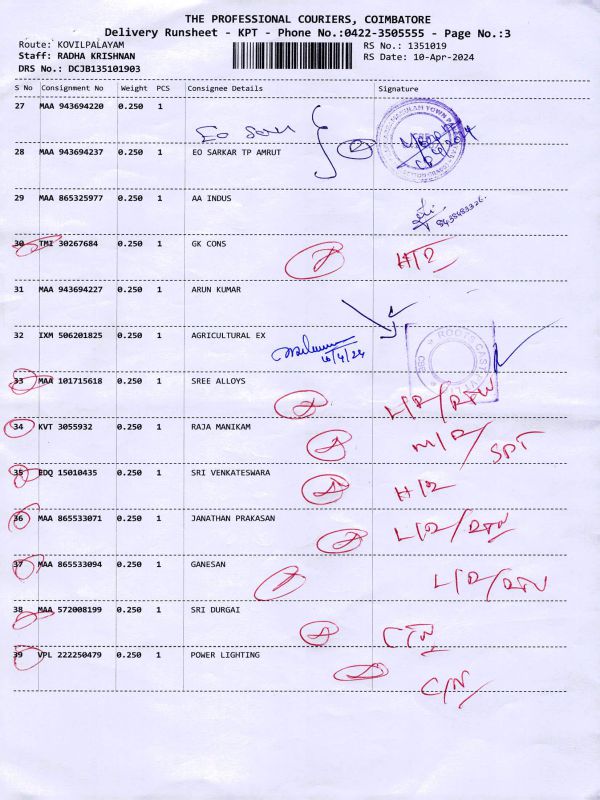 THE PROFESSIONAL COURIERS, COIMBATORE
Delivery Runsheet - KPT - Phone No.:0422-3505555 - Page No.:3
Route: KOVILPALAYAM RS No.: 1351019
Staff: RADHA KRISHNAN RS Date: 10-Apr-2024
DRS No.: DCJB135101903
S No Consignment No Weight PCS Consignee Details Signature
27 MAA 943694220 0.250 1
28 MAA 943694237 0.250 1 EO SARKAR TP AMRUT
29 MAA 865325977 0.250 1 AA INDUS
30 TMI 30267684 0.250 1 GK CONS
31 MAA 943694227 0.250 1 ARUN KUMAR
32 IXM 506201825 0.250 1 AGRICULTURAL EX
10/4/24
ROOTS CAST
33 MAA 101715618 0.250 1 SREE ALLOYS L/R/RTN
34 KVT 3055932 0.250 1 RAJA MANIKAM
35 EDQ 15010435 0.250 1 SRI VENKATESWARA
36 MAA 865533071 0.250 1 JANATHAN PRAKASAN L/R/RTN
37 MAA 865533094 0.250 1 GANESAN L/R/RTN
38 MAA 572008199 0.250 1 SRI DURGAI CTN
39 VPL 222250479 0.250 1 POWER LIGHTING C/N